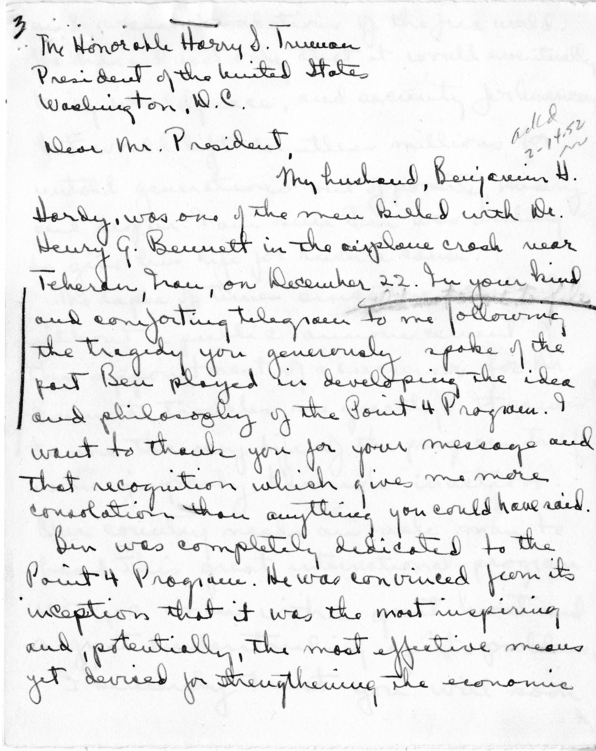 3
The Honorable Harry S. Truman
President of the United States
Washington, D.C.
ack'd
2-14-52
Dear Mr. President,
My husband, Benjamin H.
Hardy, was one of the men killed with Dr.
Henry G. Bennett in the airplane crash near
Teheran, Iran, on December 22. In your kind
and comforting telegram to me following
the tragedy you generously spoke of the
part Ben played in developing the idea
and philosophy of the Point 4 Program. I
want to thank you for your message and
that recognition which give me more
consolation than anything you could have said.
Ben was completely dedicated to the
Point 4 Program. He was convinced from its
inception that it was the most inspiring
and, potentially, the most effective means
yet devised for strengthening the economic